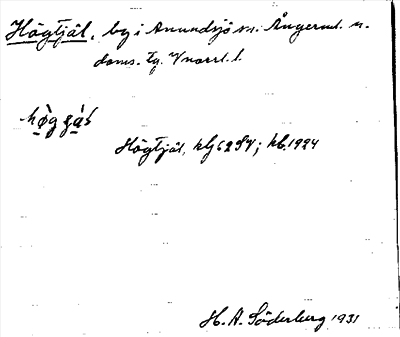 Högtjäl, by i Anundsjö sn. Ångerml. n.
doms. tg. Vnorrl. l.
Högtjäl, hfl 6284; hb. 1924
H. A. Söderberg 1931